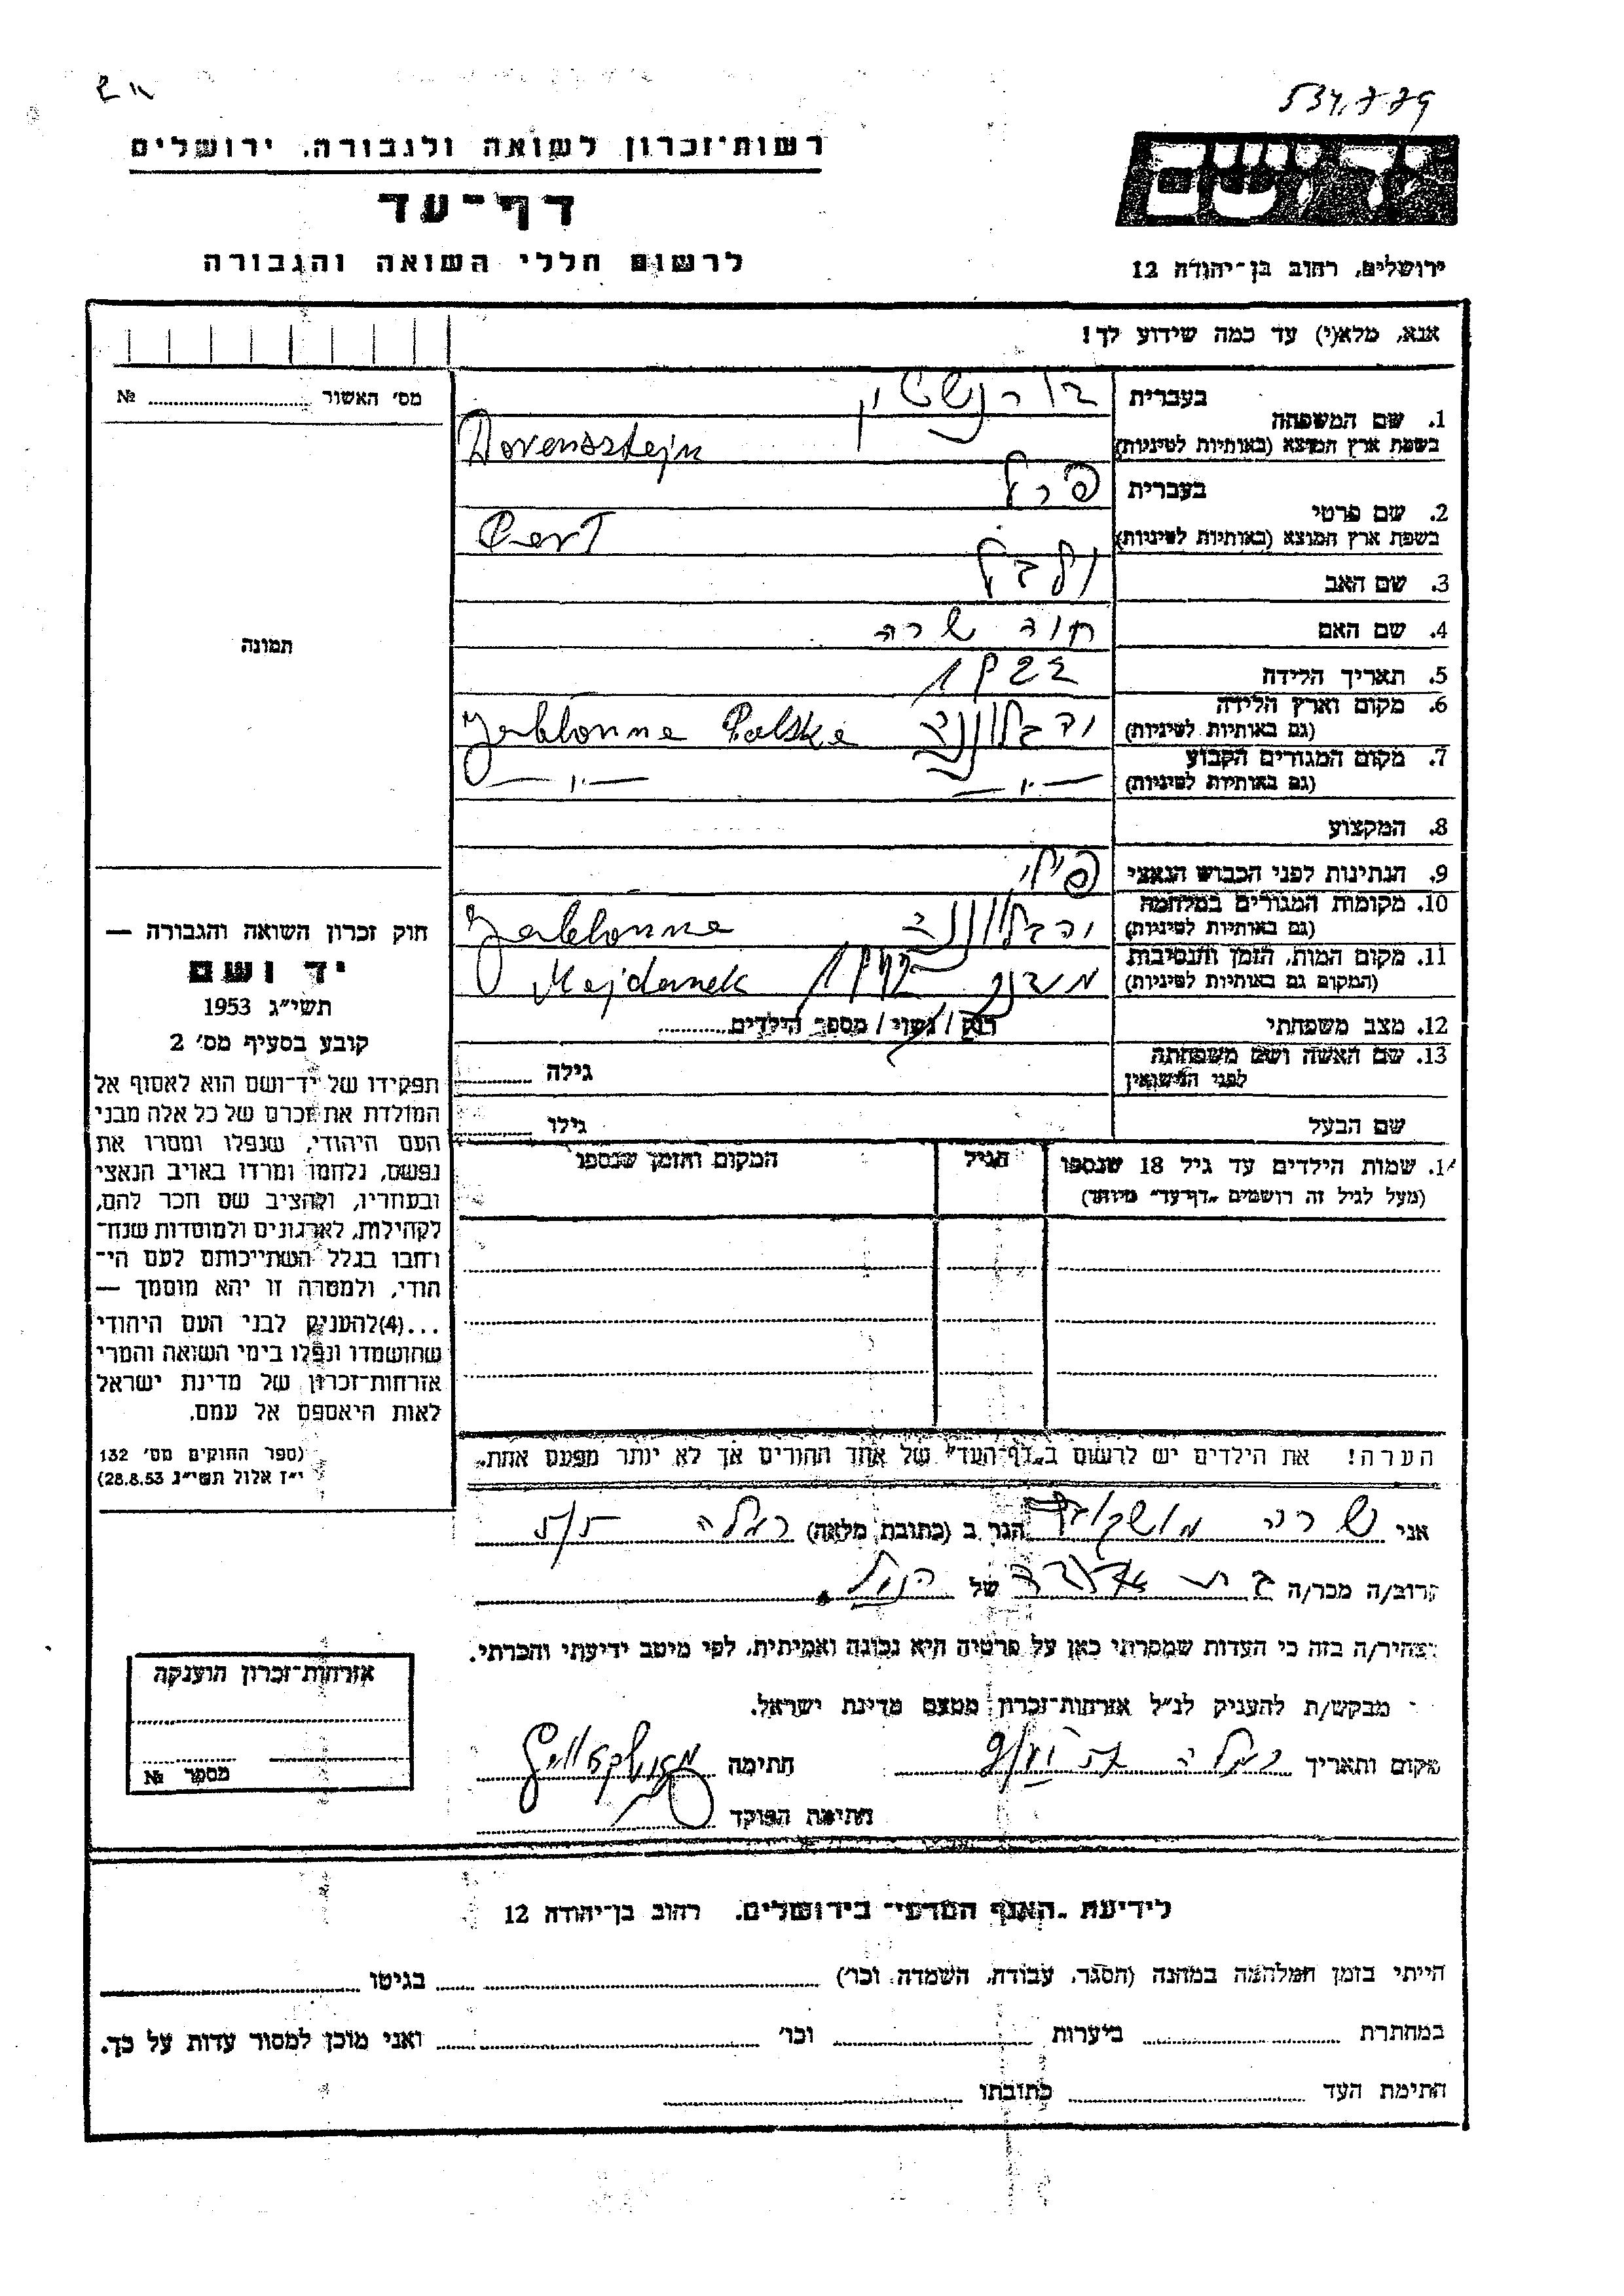 534.779
רשות־זכרון לשואה ולגבורה. ירושלים
יד ושם
דף־עד
לרשום חללי השואה והגבורה
ירושלים, רחוב בן־יהודה 12
אנא, מלא(י) עד כמה שידוע לך!
מס׳ האשור № 
1. שם המשפחה
בעברית
בשפת ארץ המוצא (באותיות לטיניות)
2. שם פרטי
בעברית פרל
בשפת ארץ המוצא (באותיות לטיניות)
3. שם האב
4. שם האם שרה
5. תאריך הלידה 1922
6. מקום וארץ הלידה
(גם באותיות לטיניות) Jabłonna Polska
7. מקום המגורים הקבוע
(גם באותיות לטיניות) —״— —״—
8. המקצוע
9. הנתינות לפני הכבוש הנאצי
10. מקומות המגורים במלחמה
(גם באותיות לטיניות) Jabłonna
11. מקום המות, הזמן והנסיבות
(המקום גם באותיות לטיניות) Majdanek
12. מצב משפחתי רוק / נשוי / מספר הילדים
13. שם האשה ושם משפחתה
לפני הנישואין
גילה
שם הבעל
גילו
תמונה
חוק זכרון השואה והגבורה —
יד ושם
תשי״ג 1953
קובע בסעיף מס׳ 2
תפקידו של יד־ושם הוא לאסוף אל
המולדת את זכרם של כל אלה מבני
העם היהודי, שנפלו ומסרו את
נפשם, נלחמו ומרדו באויב הנאצי
ובעוזריו, ולהציב שם וזכר להם,
לקהילות, לארגונים ולמוסדות שנח־
רחבו בגלל השתייכותם לעם הי־
הודי, ולמטרה זו יהא מוסמך —
...(4)להעניק לבני העם היהודי
שהושמדו ונפלו בימי השואה והמרי
אזרחות־זכרון של מדינת ישראל
לאות היאספם אל עמם.
(ספר החוקים מס׳ 132
י״ז אלול תשי״ג 28.8.53)
14. שמות הילדים עד גיל 18 שנספו
(מעל לגיל זה רושמים „דף־עד״ מיוחד)
הגיל
המקום והזמן שנספו
הערה! את הילדים יש לרשום ב„דף־העד״ של אחד ההורים אך לא יותר מפעם אחת.
אני הגר ב (כתובת מלאה) רמלה
קרוב/ה מכר/ה של הנ״ל
מצהיר/ה בזה כי העדות שמסרתי כאן על פרטיה היא נכונה ואמיתית, לפי מיטב ידיעתי והכרתי.
מבקש/ת להעניק לנ״ל אזרחות־זכרון מטעם מדינת ישראל.
מקום ותאריך רמלה חתימה
חתימת הפוקד
אזרחות־זכרון הוענקה
מספר №
לידיעת „האגף המדעי״ בירושלים. רחוב בן־יהודה 12
הייתי בזמן המלחמה במחנה (הסגר, עבודה, השמדה וכו׳) בגיטו
במחתרת ביערות וכו׳ ואני מוכן למסור עדות על כך.
חתימת העד כתובתו